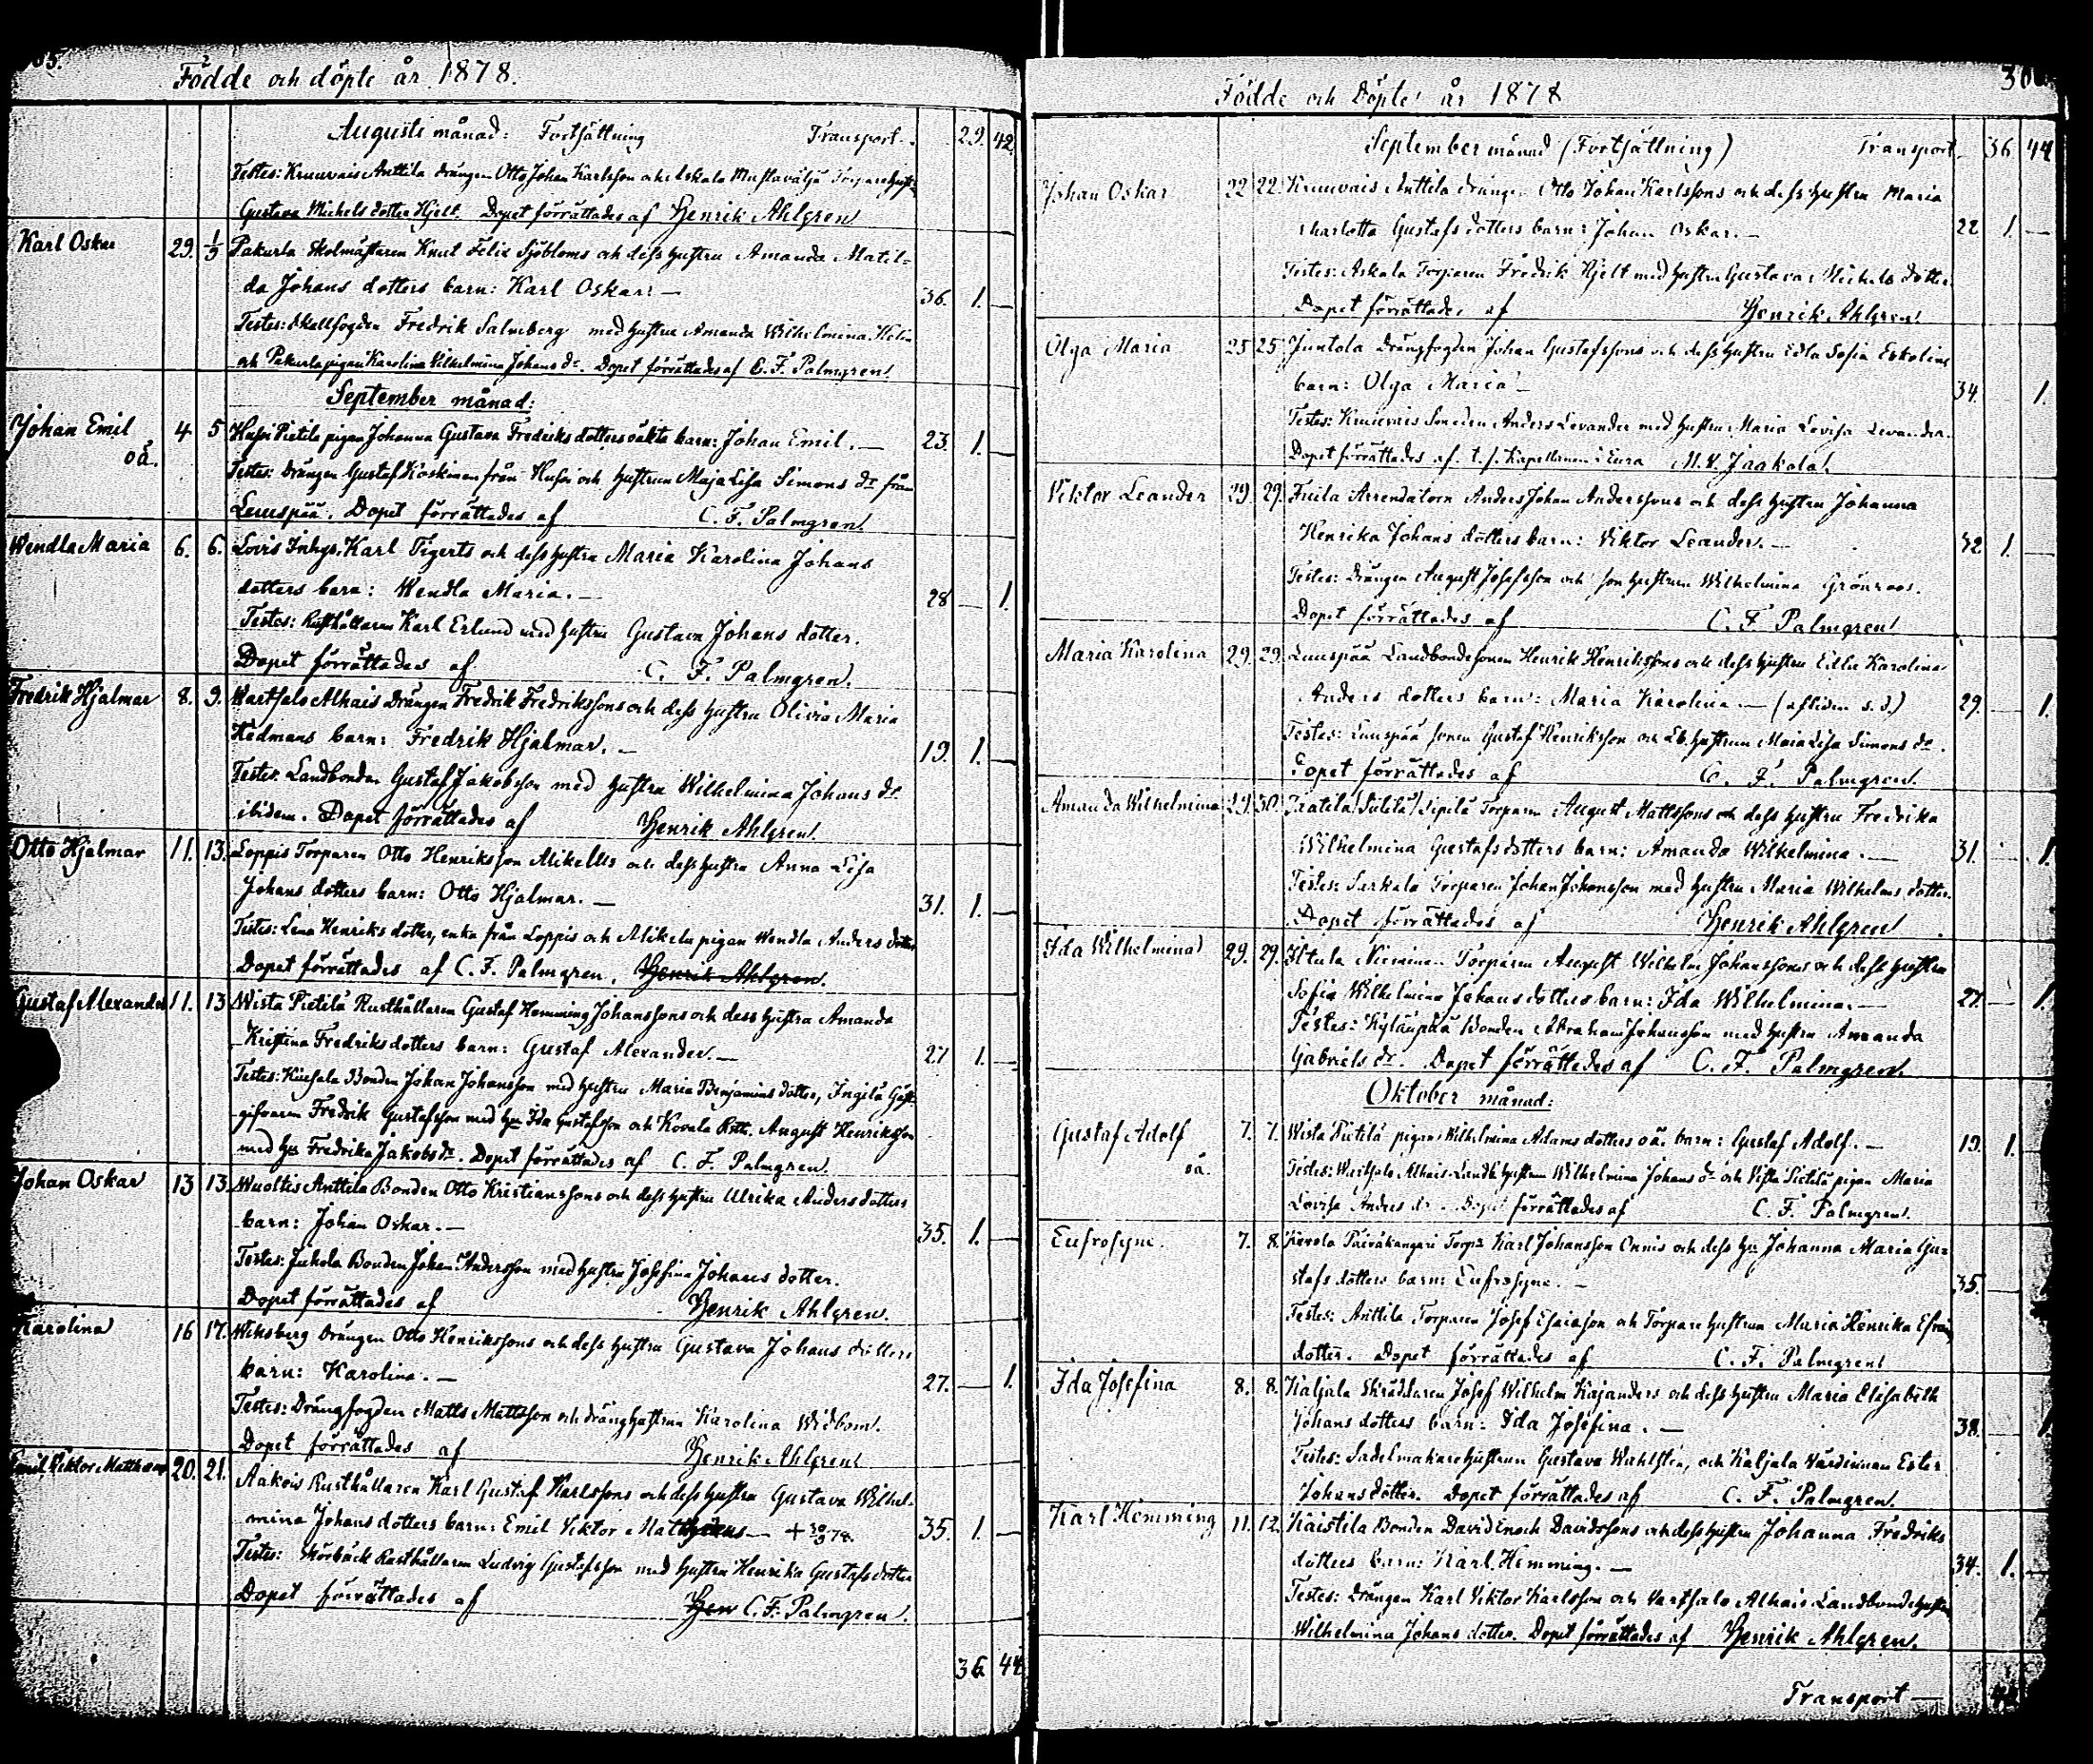 Födde och döpte år 1878.
Augusti månad: Fortsättning Transport. 29. 42.
Testes: Kruuvais Anttila drängen Otto Johan Karlsson och Askala Torpare hustr.
Gustava Michels dotter Hjelt. Dopet förrättades af Henrik Ahlgren
Karl Oskar 29. 1/9 Pakurla Skolmästaren Knut Felix Sjöbloms och dess hustru Amanda Matil=
da Johans dotters barn: Karl Oskar. — 36. 1. —
Testes: Skallfogden Fredrik Salmberg med hustru Amanda Wilhelmina
och Pakurla pigan Karolina Wilhelmina Johans dr. Dopet förrättades af C. F. Palmgren.
September månad:
Johan Emil 4 5 Husu Pietilä pigan Johanna Gustava Fredriks dotters oäkta barn: Johan Emil. — 23. 1. —
oä.
Testes: Drängen Gustaf Koskinen från Husu och hustrun Maja Lisa Simons dr från
Lauspää. Dopet förrättades af C. F. Palmgren.
Wendla Maria 6. 6. Loris Inhys. Karl Tigerts och dess hustru Maria Karolina Johans
dotters barn: Wendla Maria. — 28 — 1.
Testes: Rusthållaren Karl Erlund med hustru Gustava Johans dotter.
Dopet förrättades af C. F. Palmgren.
Fredrik Hjalmar 8. 9. Karhsalo Alhais Drängen Fredrik Fredrikssons och dess hustru Olivia Maria
Hedmans barn: Fredrik Hjalmar. — 19. 1. —
Testes: Landbonden Gustaf Jakobsson med hustru Wilhelmina Johans dr
ibidem. Dopet förrättades af Henrik Ahlgren.
Otto Hjalmar 11. 13. Loppis Torparen Otto Henriksson Mikellis och dess hustru Anna Lisa
Johans dotters barn: Otto Hjalmar. — 31. 1. —
Testes: Lena Henriks dotter, enka från Loppis och Mikela pigan Wendla Anders dotter
Dopet förrättades af C. F. Palmgren. Henrik Ahlgren.
Gustaf Alexander 11. 13 Wista Pietilä Rusthållaren Gustaf Hemming Johanssons och dess hustru Amanda
Kristina Fredriks dotters barn: Gustaf Alexander. — 27 1. —
Testes: Bonden Johan Johansson med hustru Maria Benjamins dotter, Ingilä Gäst-
gifvaren Fredrik Gustafsson med hu Ida Gustafsson och Kovala August Henriksson
med hu Fredrika Jakobs dr. Dopet förrättades af C. F. Palmgren.
Johan Oskar 13 13. Wuoltis Anttila Bonden Otto Kristianssons och dess hustru Ulrika Anders dotters
barn: Johan Oskar. — 35. 1. —
Testes: Juhola Bonden Johan Andersson med hustru Josefina Johans dotter.
Dopet förrättades af Henrik Ahlgren.
Karolina 16 17. Wiksberg Drängen Otto Henrikssons och dess hustru Gustava Johans dotters
barn: Karolina. — 27. — 1.
Testes: Drängfogden Matts Mattsson och dränghustrun Karolina Widbom.
Dopet förrättades af Henrik Ahlgren
Emil Viktor 20. 21. Aakois Rusthållaren Karl Gustaf Karlssons och dess hustru Gustava Wilhel-
mina Johans dotters barn: Emil Viktor — 35. 1. —
Testes: Skörbäck Rusthållaren Ludvig Gustafsson med hustru Henrika Gustafs dotter
Dopet förrättades af Hen C. F. Palmgren.
36 44
Födde och Döpte år 1878
September månad (Fortsättning) Transport 36 44
Johan Oskar 22 22. Kruuvais Anttila drängen Otto Johan Karlssons och dess hustru Maria
Charlotta Gustafs dotters barn: Johan Oskar. — 22 1. —
Testes: Askala Torparen Fredrik Hjelt med hustru Gustava Michels dotter.
Dopet förrättades af Henrik Ahlgren.
Olga Maria 25 25 Juntola Drängfogden Johan Gustafssons och dess hustru Edla Sofia Eskolins
barn: Olga Maria — 34. 1.
Testes: Kruuvais Smeden Anders Levander med hustru Maria Lovisa Levander.
Dopet förrättades af t. f. Kapellanen i Eura M. V. Jaakola.
Viktor Leander 29. 29. Friila Arrendatorn Anders Johan Anderssons och dess hustru Johanna
Henrika Johans dotters barn: Viktor Leander. — 32 1. —
Testes: Drängen August Josefsson och hustrun Wilhelmina Grönroos.
Dopet förrättades af C. F. Palmgren
Maria Karolina 29. 29. Lauspää Landbondesonen Henrik Henrikssons och dess hustru Edla Karolina
Anders dotters barn: Maria Karolina — (afliden s. d.) 29. — 1.
Testes: Lauspää sonen Gustaf Henriksson och Lb. hustrun Maia Lisa Simons dr.
Dopet förrättades af C. F. Palmgren.
Amanda Wilhelmina 29. 30. Sipilä Torparen August Mattssons och dess hustru Fredrika
Wilhelmina Gustafs dotters barn: Amanda Wilhelmina. — 31. — 1.
Testes: Sarkala Torparen Johan Johansson med hustru Maria Wilhelms dotter.
Dopet förrättades af Henrik Ahlgren
Ida Wilhelmina 29. 29. Iltula Nieminen Torparen August Wilhelm Johanssons och dess hustru
Sofia Wilhelmina Johans dotters barn: Ida Wilhelmina. — 27. — 1.
Testes: Kylänpää Bonden Abraham Johansson med hustru Amanda
Gabriels dr. Dopet förrättades af C. F. Palmgren.
Oktober månad:
Gustaf Adolf 7. 7. Wista Pietilä pigan Wilhelmina Adams dotters oä. barn: Gustaf Adolf. — 19. 1.
oä.
Testes: Alhais Landb. hustrun Wilhelmina Johans dr och Vista Pietilä pigan Maria
Lovisa Anders dr. Dopet förrättades af C. F. Palmgren.
Eufrosyne. 7. 8. Kovola Päiväkangari Torp. Karl Johansson Onnis och dess hu Johanna Maria Gu=
stafs dotters barn: Eufrosyne. — 35. —
Testes: Anttila Torparen Josef Esaiasson och Torpare hustrun Maria Henrika
dotter. Dopet förrättades af C. F. Palmgren
Ida Josefina 8. 8. Kaljala Skräddaren Josef Wilhelm Kajanders och dess hustru Maria Elisabeth
Johans dotters barn: Ida Josefina. — 38. — 1
Testes: Sadelmakarehustrun Gustava Wahlstén, och Kaljala Värdinnan Ester
Johans dotter. Dopet förrättades af C. F. Palmgren.
Karl Hemming 11. 12. Kaistila Bonden David Enoch Davidssons och dess hustru Johanna Fredriks
dotters barn: Karl Hemming. — 34. 1. —
Testes: Drängen Karl Viktor Karlsson och Alhais Landbondehustru
Wilhelmina Johans dotter. Dopet förrättades af Henrik Ahlgren.
Transport —